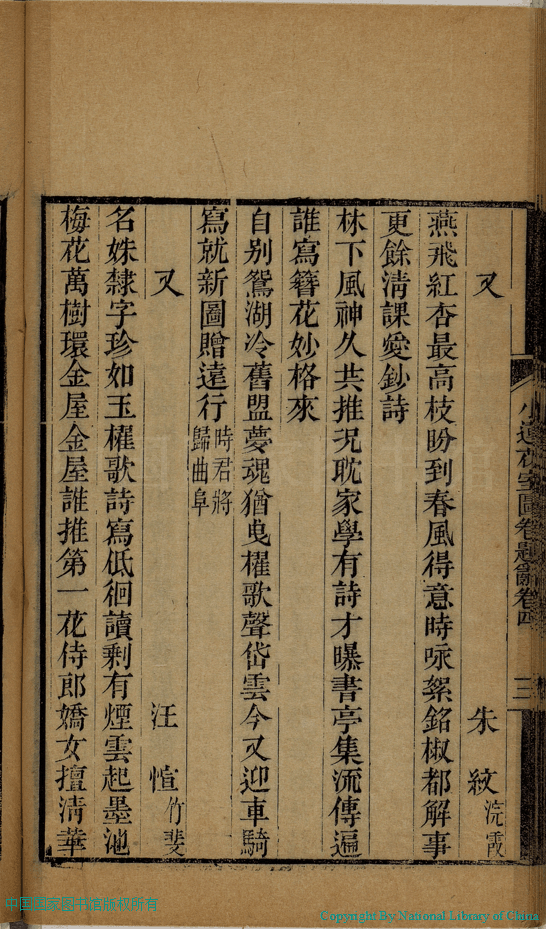 又　朱紋浣霞
燕飛紅杏最高枝盼到春風得意時咏絮銘椒都解事
更餘清課愛鈔詩
林下風神久共推況耽家學有詩才曝書亭集流傳遍
誰寫簪花妙格來
自别鴛湖冷舊盟夢魂猶曳櫂歌聲岱雲今又迎車騎
寫就新圖贈遠行時君將歸曲阜
又　汪愃竹斐
名姝隸字珍如玉櫂歌詩寫低徊讀剩有煙雲起墨池
梅花萬樹環金屋金屋誰推第一花侍郎嬌女擅清華
圖卷題辭卷四
三
中国国家图书馆版权所有
Copyright By National Library of China